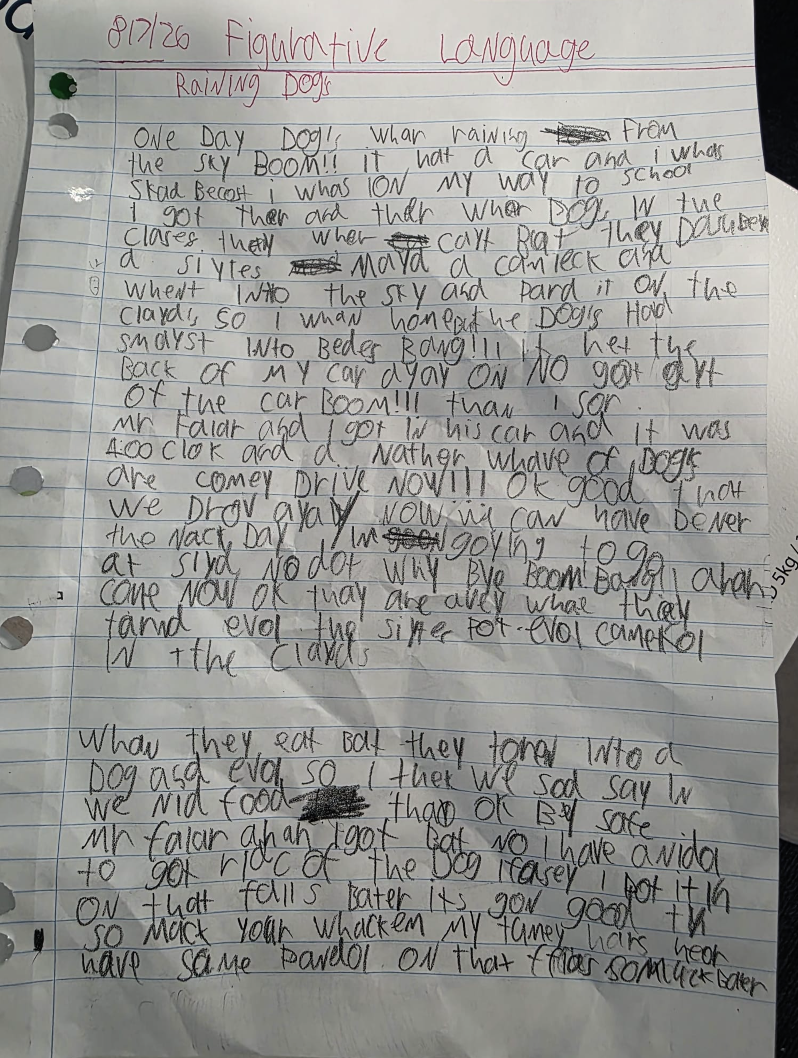 8/7/26 Figurative Language
Raining Dogs
One Day Dog's whar raining From
the sky BOOM!! it hat a car and i whas
skad Becost i whas ION My way to school
I got ther and ther wher Dogs in the
clases they wher cayt Bat They
a siytes Mayd a camleck and
whent INto the sky and pard it ON the
clayds so i whan home But he Dog's Had
smayst INto Beder Bang!!! it het the
Back of My car ayay ON NO got ayt
of the car BOOM!!! than I sar
Mr Falar and I got IN his car and it was
4:00 Clok and a Nather whave of Dogs
are comey Drive NOW!!! Ok good that
we Drov ayay NOW we can have Dener
the Nact Day I'm goying to go
at siyd No dot why Bye BOOM! Bang!! ahah
come NOW ok thay are avey what thay
tarnd evol the siyter Pot evol camekol
IN the clayds
Whan they eat Bat they toned into a
Dog and evol so I thek we sod say IN
we Nid food than OK Bey safe
Mr falar ahah I got Bat NO I have a nida
to got ridc of the Dog ifasey I Pot it in
ON that falls Bater its gon good th
so Mack your whackem My famey hars hear
have same pandol ON that somuck Bater
5kg